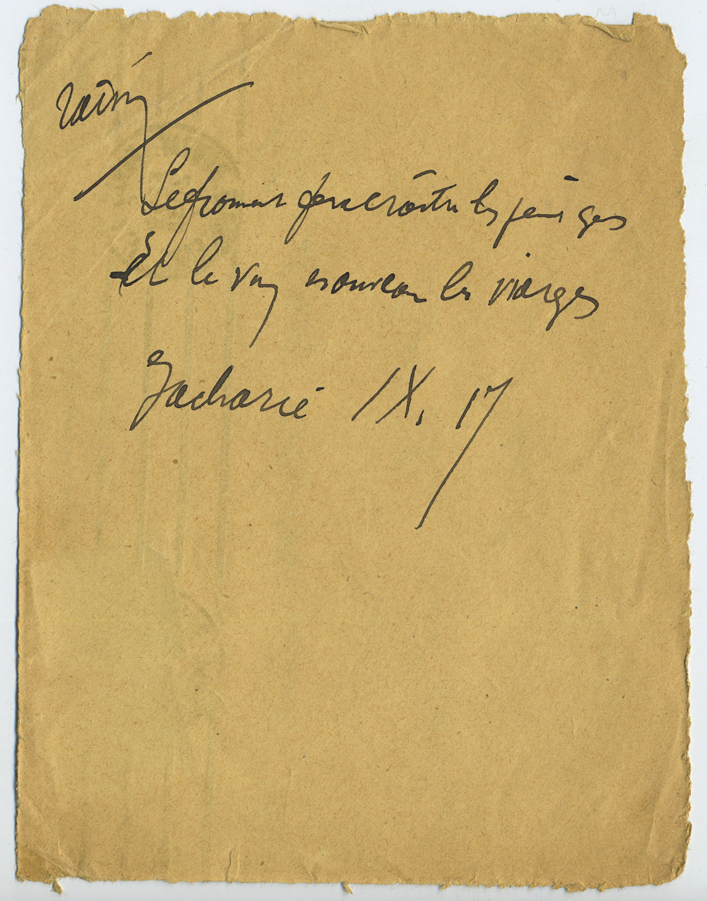 Le froment fera croître les jeunes gens
Et le vin nouveau les vierges
Zacharie IX, 17